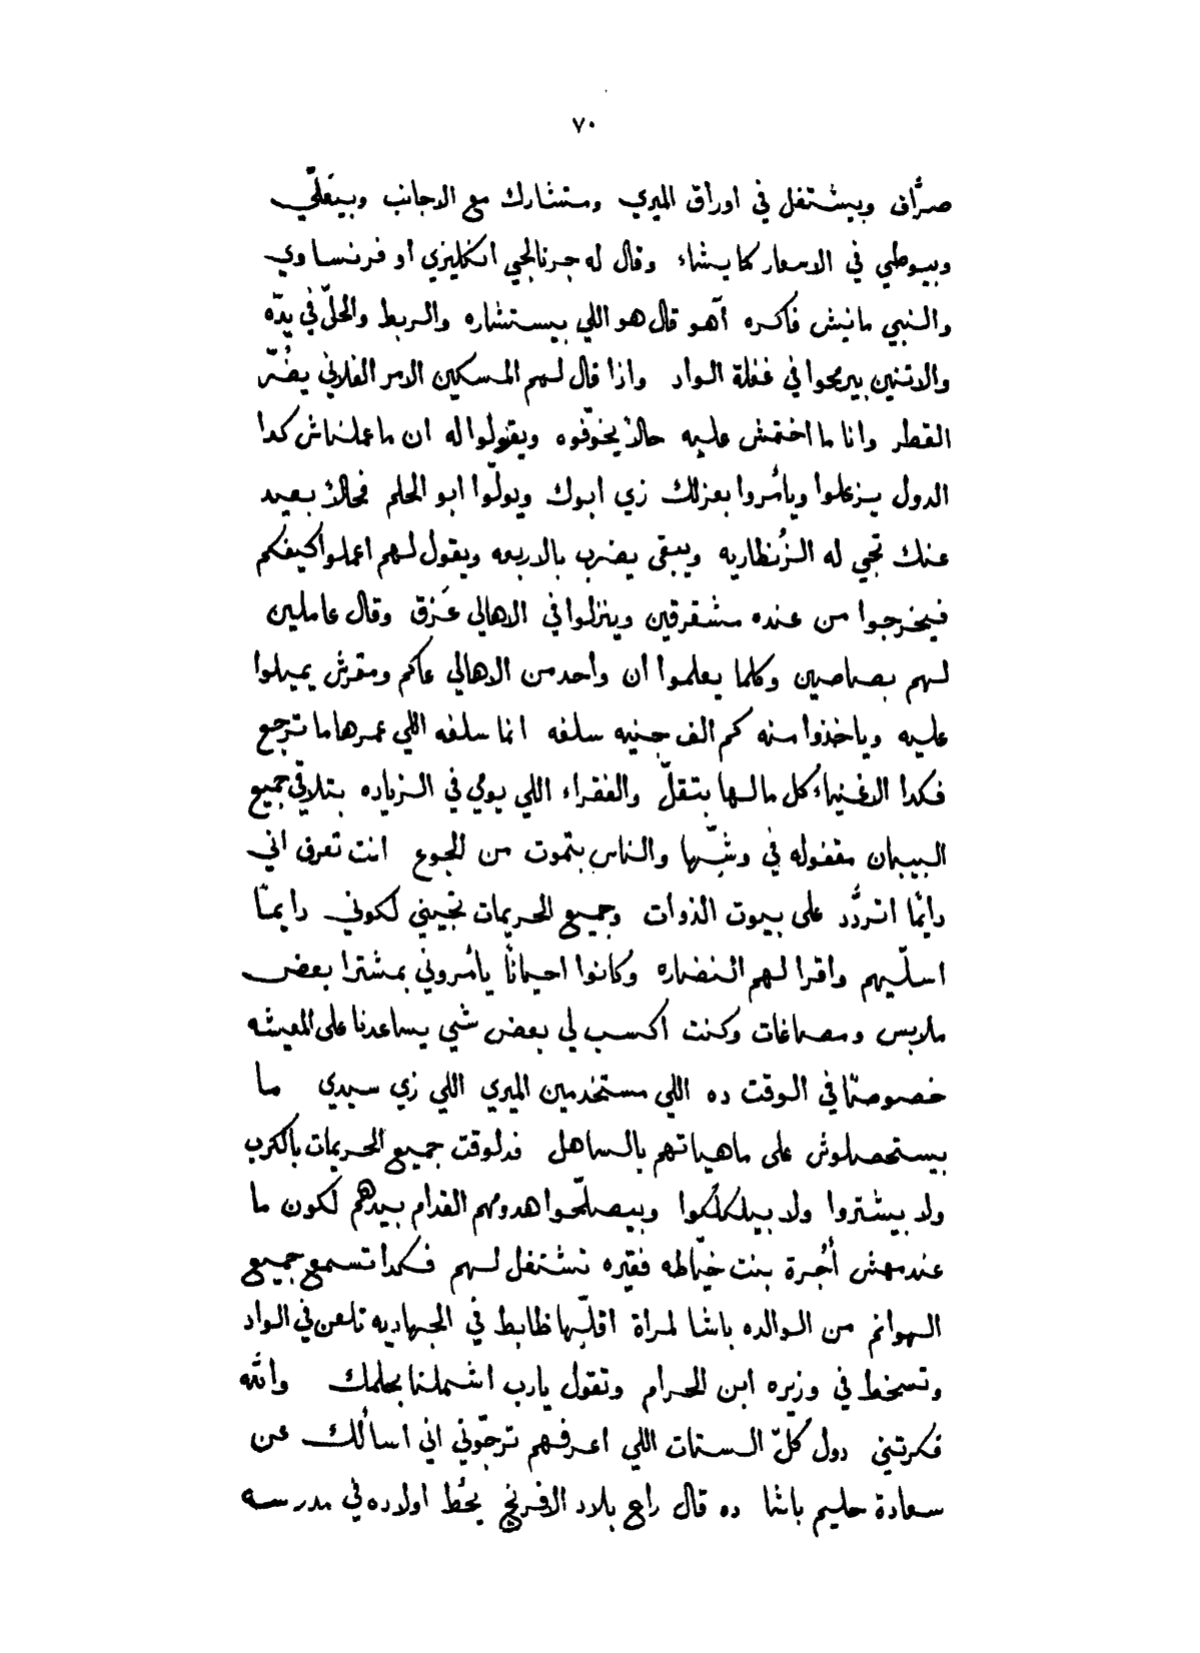 ٧٠
صرَّاف وبيشتغل في اوراق الميري ومتشارك مع الاجانب وبيعَلّي
وبيوطي في الاسعار كما يشاء وقال له جرنالجي انكليزي او فرنساوي
والنبي مانيش فاكره آهو قال هو اللي بيستشاره والربط والحلّ في يدّه
والاتنين بيرمحوا في غفلة الواد واذا قال لهم المسكين الامر الفلاني يضُرّ
القطر وانا ما اختمش عليه حالاً يخوّفوه ويقولوا له ان ما عملناش كدا
الدول يزعلوا ويأمروا بعزلك زي ابوك ويولّوا ابو الحلم فحالاً بعيد
عنك تجي له الزُنطاريه ويبقى يضرب بالاربعه ويقول لهم اعملوا كيفكم
فيخرجوا من عنده مشقرقين وينزلوا في الاهالي عَزق وقال عاملين
لهم بصاصين وكلما يعلموا ان واحد من الاهالي عاكم ومقرش يميلوا
عليه وياخذوا منه كم الف جنيه سلفه انما سلفه اللي عمرها ما ترجع
فكدا الاغنياء كل مالها بتقلّ والفقراء اللي يومي في الزياده بتلاقي جميع
البيبان مقفوله في وشّها والناس بتموت من الجوع انت تعرف اني
دايمًا اتردَّد على بيوت الذوات وجميع الحريمات تجيبني لكوني دايمًا
اسلّيهم واقرا لهم النضاره وكانوا احيانًا يأمروني بمشترا بعض
ملابس ومصاغات وكنت اكسب لي بعض شي يساعدنا على المعيشه
خصوصًا في الوقت ده اللي مستخدمين الميري اللي زي سيدي ما
بيستحصلوش على ماهياتهم بالساهل فدلوقت جميع الحريمات بالكرب
ولا بيشتروا ولا بيلكلكوا وبيصلّحوا هدومهم القدام بيدهم لكون ما
عندمهش أُجرة بنت خيّاطه فقيره تشتغل لهم فكدا تسمع جميع
الهوانم من الوالده باشا لمراة اقلّها ظابط في الجهاديه تلعن في الواد
وتسخط في وزيره ابن الحرام وتقول يارب اشملنا بحلمك والله
فكرتيني دول كلّ الستات اللي اعرفهم ترجّوني اني اسألك عن
سعادة حليم باشا ده قال راح بلاد الافرنج يحُط اولاده في مدرسه